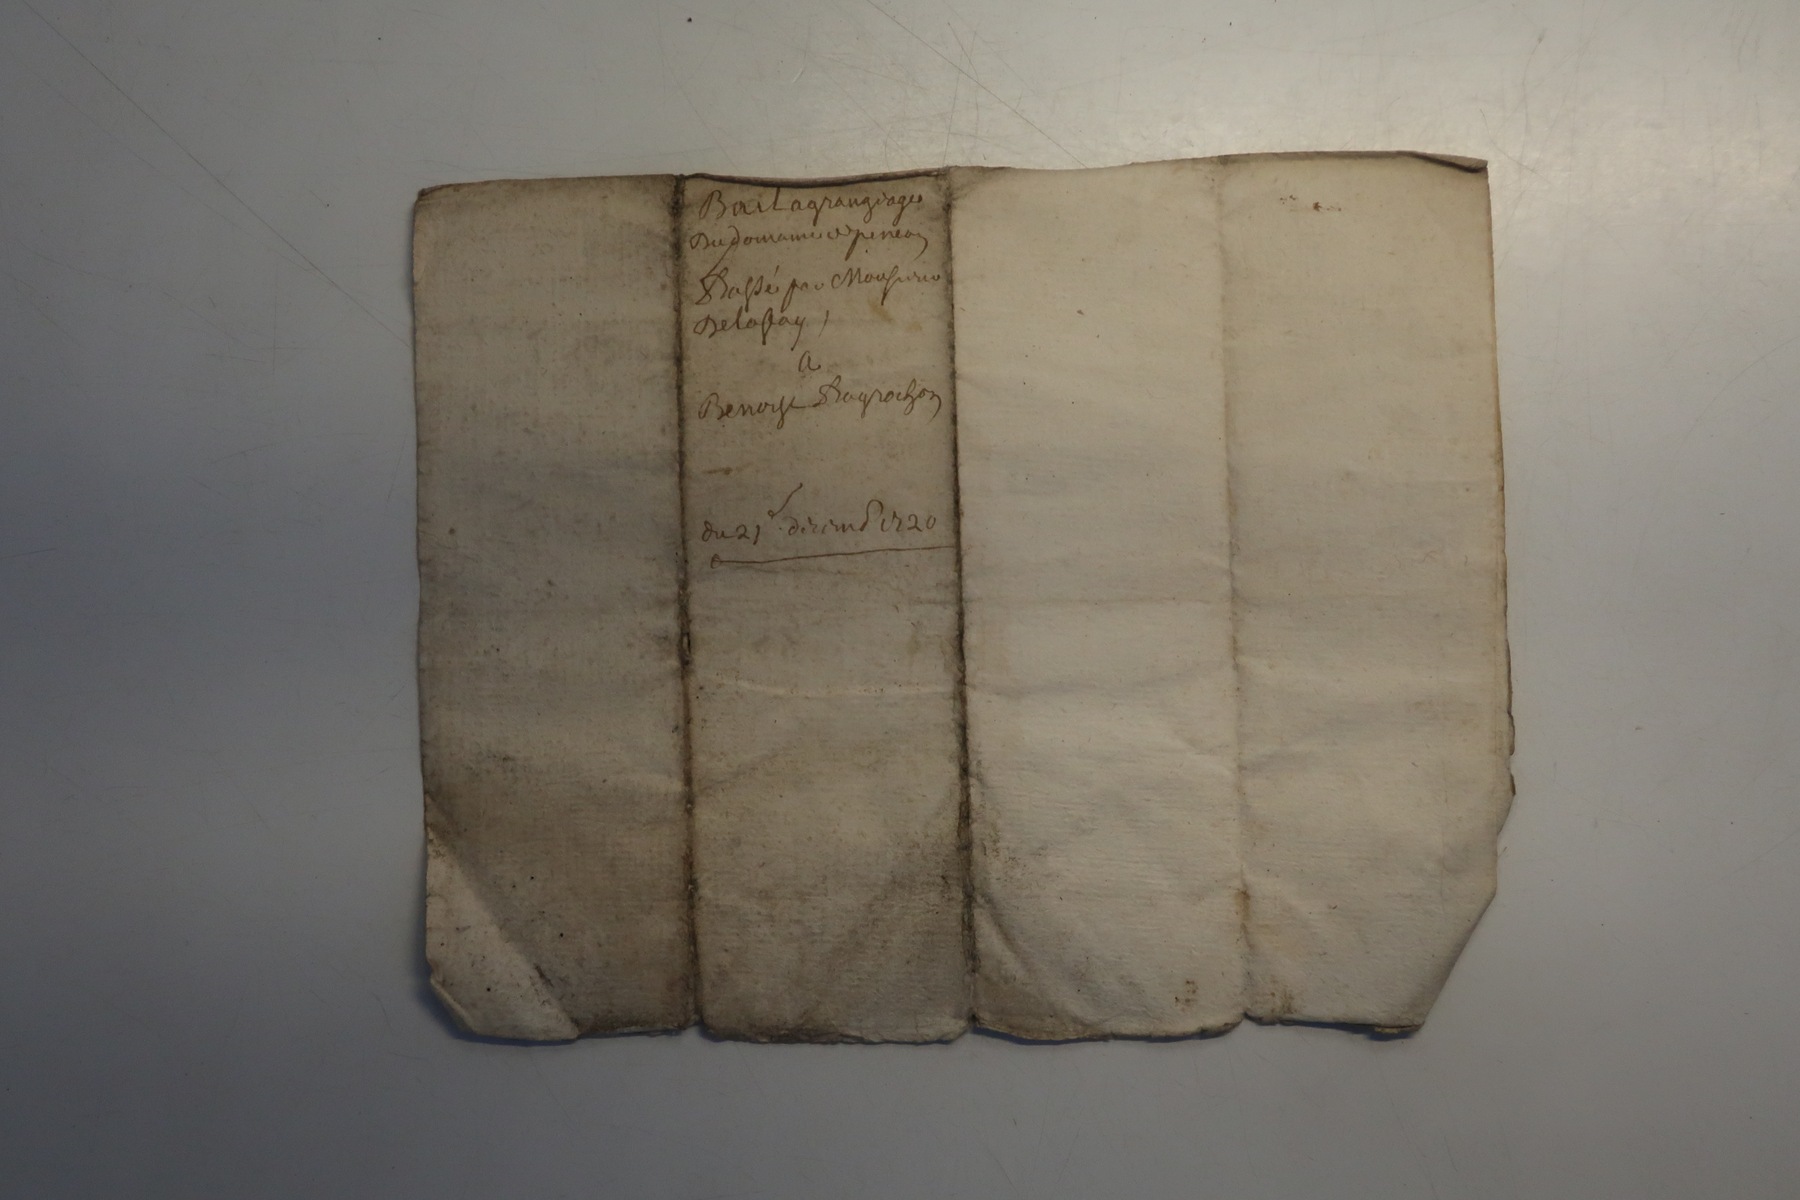 Bail a grangeage
Du domaine de peneon
Passé par Monsieur
Delafay
a
Benoist Rayrochon
du 21e decemb 1720